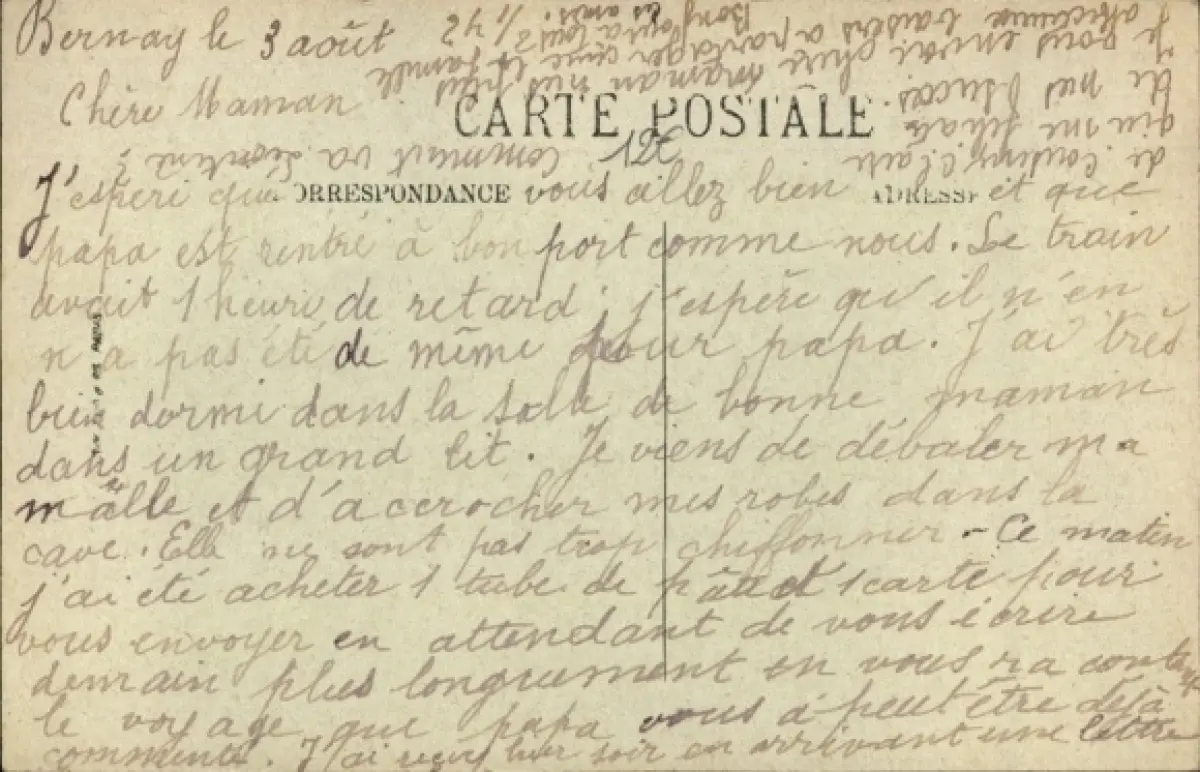 Bernay le 3 août
Chère Maman
CARTE POSTALE
12f
CORRESPONDANCE
ADRESSE
J'espère que vous allez bien et que
papa est rentré à bon port comme nous. Le train
avait 1 heure de retard ; j'espère qu'il n'en
n'a pas été de même pour papa. J'ai très
bien dormi dans la salle de bonne maman
dans un grand lit. Je viens de débaler ma
mâlle et d'accrocher mes robes dans la
cave. Elle ne sont pas trop chiffonner - Ce matin
j'ai été acheter 1 tube de pâte et 1 carte pour
vous envoyer en attendant de vous écrire
demain plus longuement en vous racontant
le voyage que papa vous a peut être déjà
commenté. J'ai reçu hier soir en arrivant une lettre
de
qui me
de mes succès.
Je vous envoi chère maman mes plus
affectueux baisers à partager avec la famille
Bonjour à tous
les amis.
Comment va Léontine ?